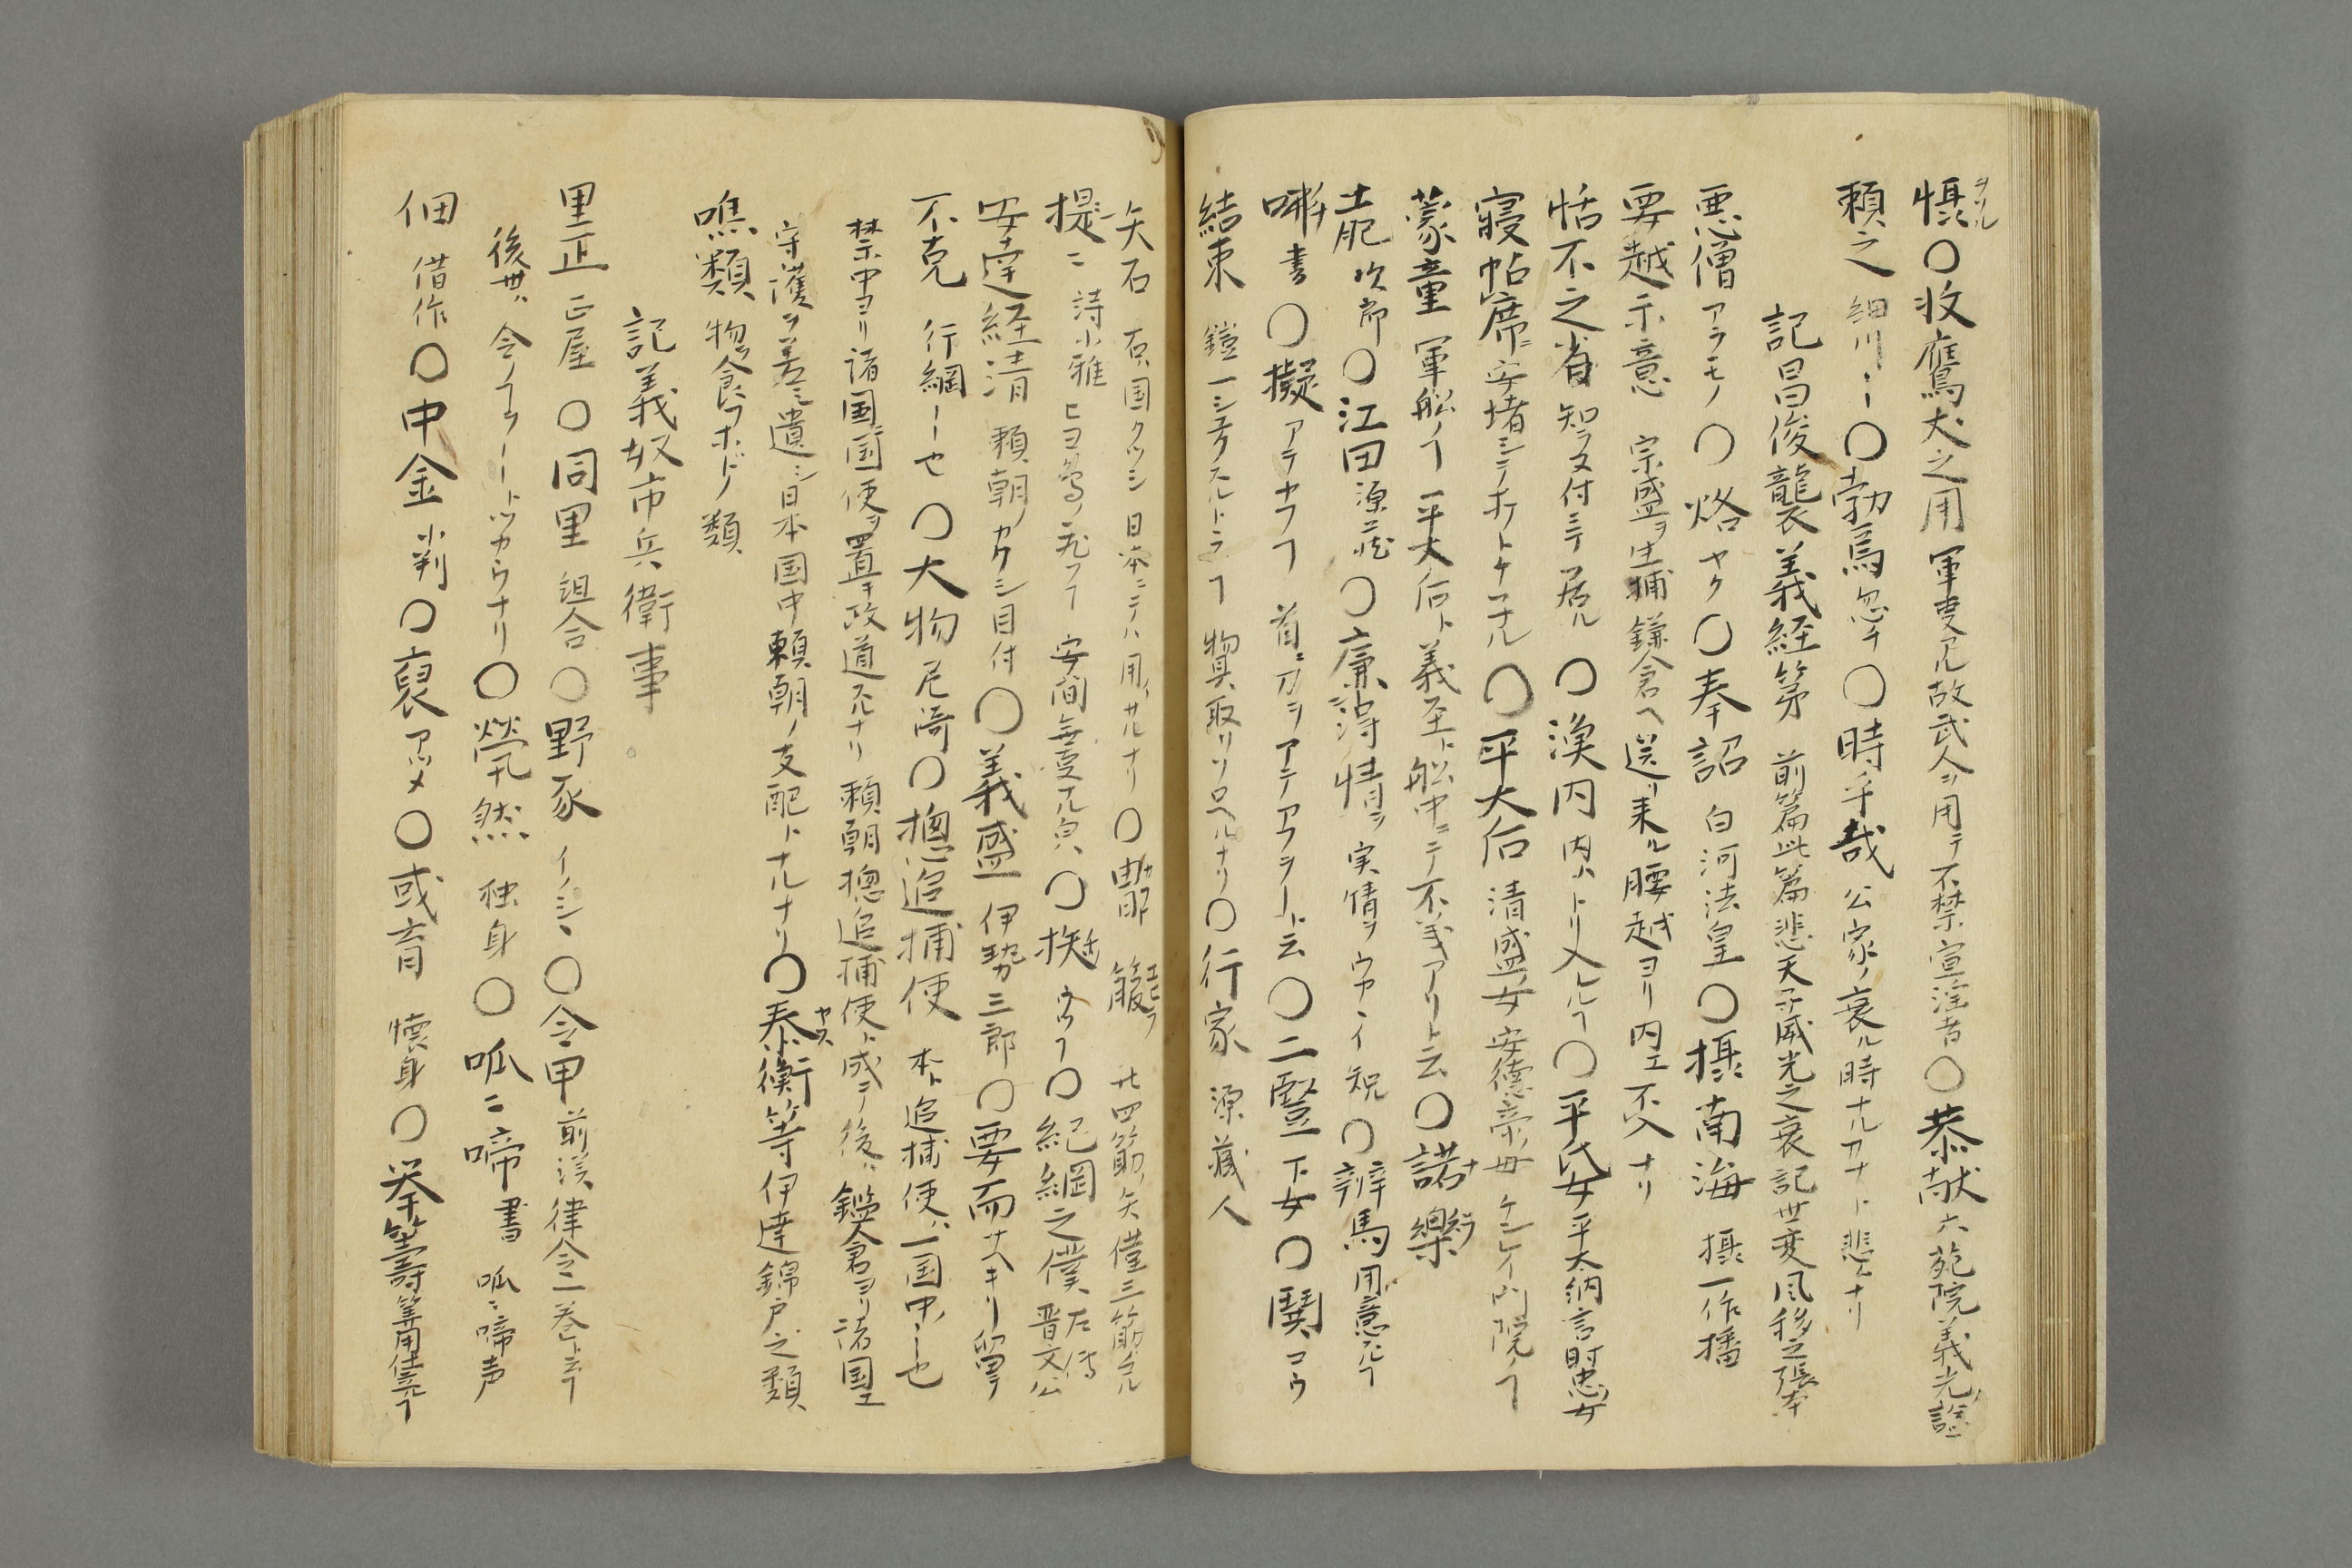 慑 ヲソル 〇收鷹犬之用 軍叓アル故武人ヲ用テ不禁宣淫者 〇恭献 六苑院義光ノ諡
頼之 細川〻〻 〇勃焉 忽チ 〇時乎哉 公家ノ衰ル時ナルカナト悲ムナリ
記昌俊襲義経第 前篇此篇悲天子威光之衰記世変風移之張本
悪僧 アラモノ 〇烙 ヤク 〇奉詔 白河法皇 〇摂南海 摂一作播
要越示意 宗盛ヲ生捕鎌倉ヘ送リ来ル腰越ヨリ内エ不入ナリ
恬不之省 知ラヌ付ニテ居ル 〇漁内 内ヘトリ入ルヽヿ 〇平氏女 平大納言時忠ノ女
寝帖席ニ 安堵シテホツトケヌナル 〇平大后 清盛ノ女安徳帝ノ母ケンレイ門院ノヿ
蒙童 軍船ノヿ平大后ト義至ト船中ニテ不義アリト云 〇諾樂
土肥 次郎 〇江田 源三 〇廉得情ヲ 実情ヲウカヽイ知 〇辨馬 用意スルヿ
嘶 書 〇擬 アテカフヿ 首ニ刀ヲアテカフヲ一ト云 〇二豎 下女 〇鬨 コウ
結束 鎧一シヨクスルトテヿ物具取リソロヘルナリ 〇行家 源蔵人
矢石 石国クツシ日本ニテハ用ヘサルナリ 〇 箙 エヒラ 廿四筋ノ矢僅三筋
提ニ 詩小雅ヒヨ鳥ノ飛フヿ 安閒無叓ナル皃 〇 ウツヿ 〇紀綱之僕 左傳晋文公
安達経清 頼朝ノカクシ目付 〇義盛 伊勢三郎 〇要而 サヘキリ留テ
不克 行綱〻〻セ 〇大物 尼崎 〇摠追捕使 本ト追捕使ハ一国中ノ〻也
禁中ヨリ諸国ニ国使ヲ置キ政道スルナリ頼朝摠追捕使ト成テ後ハ鎌倉ヨリ諸国エ
守護ヲ差シ遣シ日本国中頼朝ノ支配トナルナリ 〇泰衡等 ヤス 伊達錦戸之類
噍類 物ヲ食フホドノ類
記義奴市兵衛事
里正 庄屋 〇同里 組合 〇野豕 イノシヽ 〇令甲 前漢律令一巻ト云フ
後世ハ令ノヿヲ〻トツカウナリ 〇煢然 独身 〇呱ニ啼 書呱ニ啼声
佃 借作 〇中金 小判 〇裒 アツメ 〇或育 懐身 〇挙籌